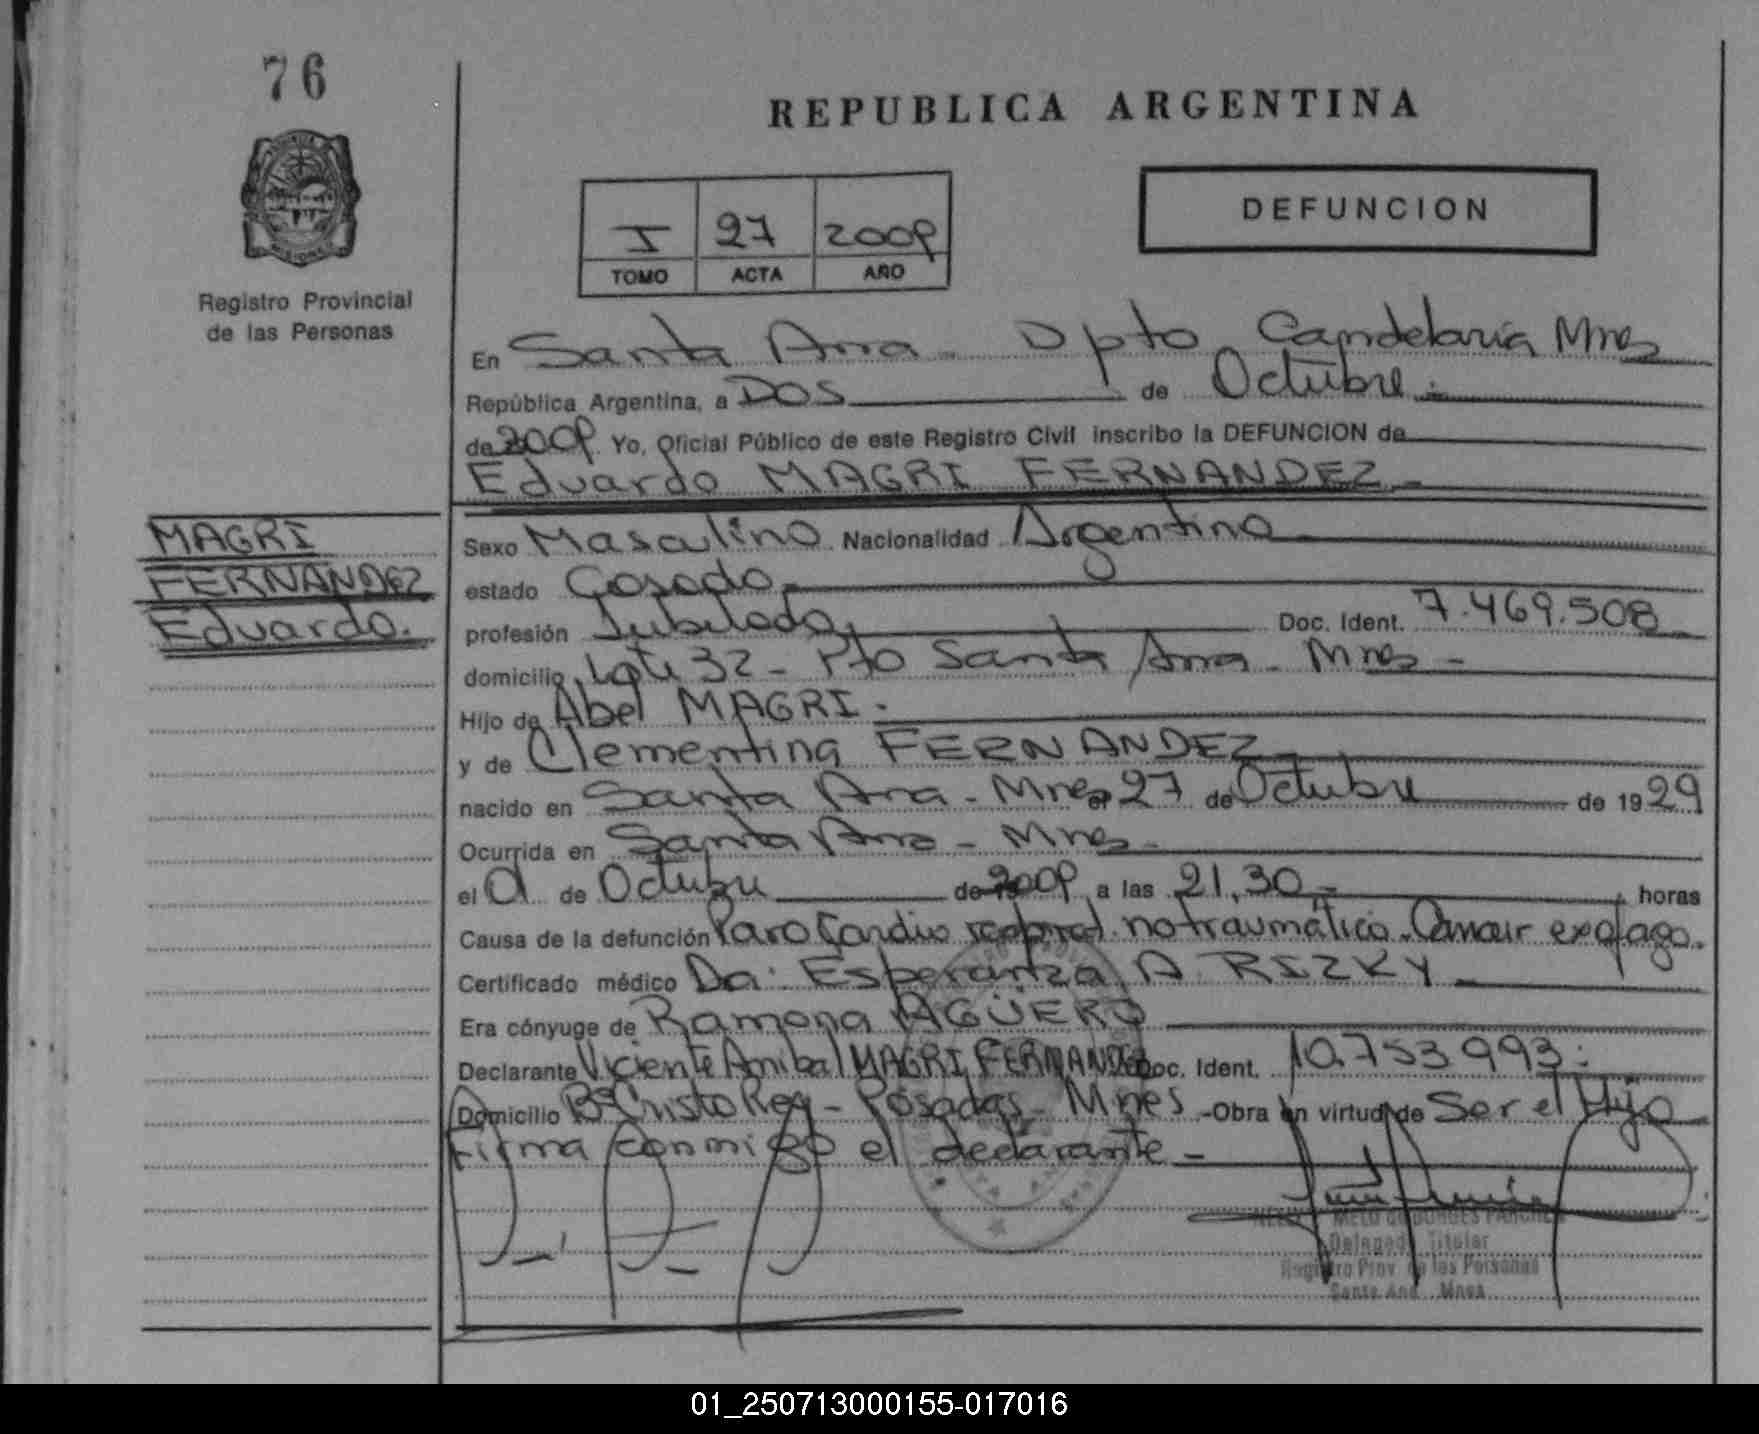 76
REPUBLICA ARGENTINA
I 27 2009
TOMO ACTA AÑO
DEFUNCION
Registro Provincial
de las Personas
En Santa Ana - Dpto Candelaria Mnes
República Argentina, a DOS de Octubre.
de 2009. Yo, Oficial Público de este Registro Civil inscribo la DEFUNCION de
Eduardo MAGRI FERNANDEZ -
MAGRI
FERNANDEZ
Eduardo.
Sexo Masculino Nacionalidad Argentina
estado Casado
profesión Jubilado Doc. Ident. 7.469.508
domicilio Lote 32 - Pto Santa Ana - Mnes -
Hijo de Abel MAGRI.
y de Clementina FERNANDEZ
nacido en Santa Ana - Mnes el 27 de Octubre de 1929
Ocurrida en Santa Ana - Mnes -
el 01 de Octubre de 2009 a las 21,30 - horas
Causa de la defunción Paro Cardio no traumático. exofago.
Certificado médico Dra: Esperanza A. RSZKY
Era cónyuge de Ramona AGÜERO
Declarante Viciente Anibal MAGRI FERNANDEZ Doc. Ident. 10.753.993.
Domicilio Bº Cristo Rey - Posadas - Mnes - Obra en virtud de Ser el Hijo
Firma conmigo el declarante -
MELO de BORGES
Delegada Titular
Registro Prov. de las Personas
Santa Ana Mnes
01_250713000155-017016